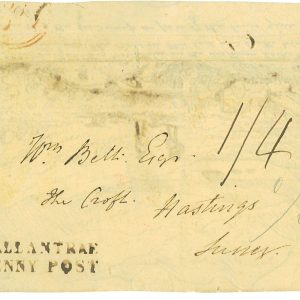 Wm Bell. Esqr.
1/4
The Croft.
Hastings
Sussex.
ALLANTRAE
ENNY POST